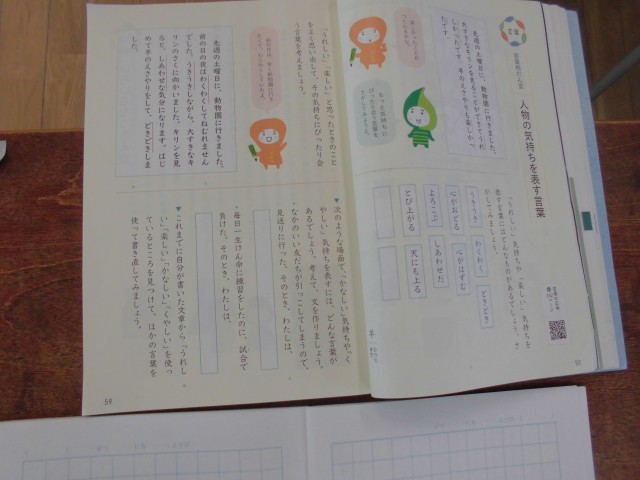 言葉
人物の気持ちを表す言葉
「うれしい」気持ちや「楽しい」気持ちを
表す言葉には、どんなものがあるでしょう。さ
がしてみましょう。
うきうき
わくわく
どきどき
心がおどる
心がはずむ
よろこぶ
しあわせだ
とび上がる
天にも上る
先週の土曜日に、動物園に行きました。
大すきなキリンを見ることができてうれ
しかったです。羊のえさやりも楽しかっ
たです。
もっと気持ちに
ぴったり合う言葉を
さがしてみよう。
「うれしい」「楽しい」と思ったときのこと
をよく思い出して、その気持ちにぴったり合
う言葉を考えましょう。
先週の土曜日に、動物園に行きました。
前の日の夜はわくわくしてねむれません
でした。うきうきしながら、大すきなキ
リンのさくに向かいました。キリンを見
ると、しあわせな気分になります。はじ
めて羊のえさやりをして、どきどきしま
した。
▼次のような場面で、「かなしい」気持ちや「く
やしい」気持ちを表すには、どんな言葉が
あるでしょう。考えて、文を作りましょう。
・なかのいい友だちが引っこしてしまうので、
見送りに行った。そのとき、わたしは、
・毎日一生けん命に練習をしたのに、試合で
負けた。そのとき、わたしは、
▼これまでに自分が書いた文章から「うれし
い」「楽しい」「かなしい」「くやしい」を使っ
ているところを見つけて、ほかの言葉を
使って書き直してみましょう。
59